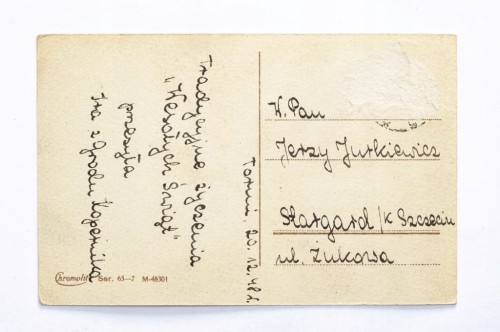 Tradycyjne życzenia
"Wesołych Świąt"
przesyła
Ira z Grodu Kopernika
Toruń, 20.12.48 r.
W. Pan
Jerzy Jurkiewicz
Stargard /k Szczecin
ul. Żukowsa
Chromolit Ser. 63—7 M-46301